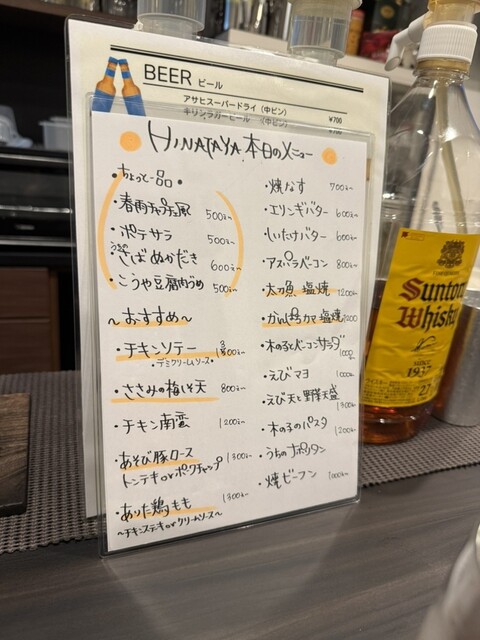 BEER ビール
アサヒスーパードライ (中ビン) ¥700
キリンラガービール (中ビン) ¥700
HINATAYA 本日のメニュー
・ちょっと一品・
・春雨チャプチェ風 500
・ポテサラ 500
・さばぬかだき 600
・こうや豆腐肉づめ 500
〜おすすめ〜
・チキンソテー
・デミクリームソース・
・ささみの梅しそ天 800
・チキン南蛮 1200
・あそび豚ロース 1300
トンテキorポークチャップ
・ありた鶏もも 1300
〜チキンステキorクリームソース〜
・焼なす 700
・エリンギバター 600
・しいたけバター 600
・アスパラベーコン 800
・太刀魚 塩焼 1200
・かんぱちカマ塩焼
・木の子とベーコンサラダ 1000
・えびマヨ 1000
・えび天と野菜天盛 1300
・木の子のパスタ 1200
・うちのナポリタン
・焼ビーフン 1000
Suntory
Whisky
SINCE
1937